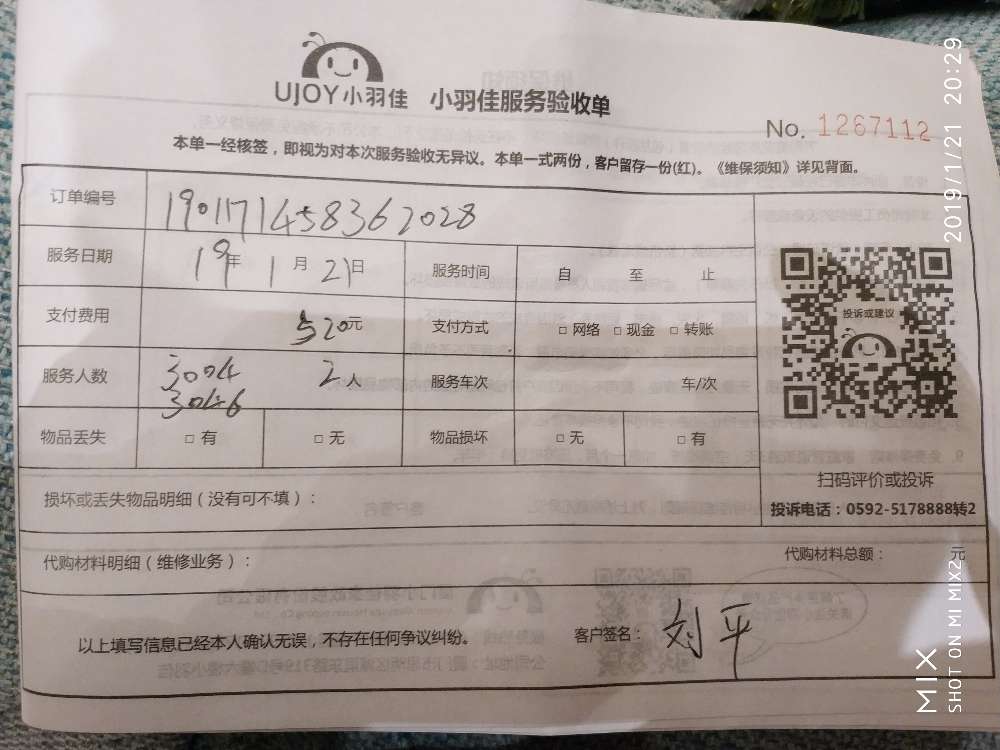 UJOY小羽佳 小羽佳服务验收单
No. 1267112
本单一经核签，即视为对本次服务验收无异议。本单一式两份，客户留存一份(红)。《维保须知》详见背面。
订单编号 1901171458362028
服务日期 19年 1月 21日 服务时间 自 至 止
支付费用 520元 支付方式 □ 网络 □ 现金 □ 转账
服务人数 3004 3046 2人 服务车次 车/次
物品丢失 □ 有 □ 无 物品损坏 □ 无 □ 有
投诉或建议
扫码评价或投诉
投诉电话：0592-5178888转2
损坏或丢失物品明细（没有可不填）：
代购材料明细（维修业务）： 代购材料总额： 元
以上填写信息已经本人确认无误，不存在任何争议纠纷。 客户签名： 刘平
2019/1/21 20:29
MIX
SHOT ON MI MIX2